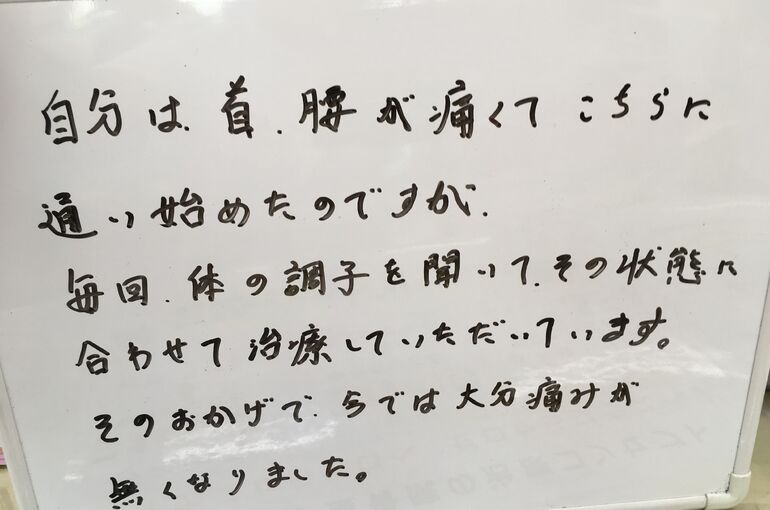 自分は、首、腰が痛くてこちらに
通い始めたのですが、
毎回、体の調子を聞いて、その状態に
合わせて治療していただいています。
そのおかげで、今では大分痛みが
無くなりました。